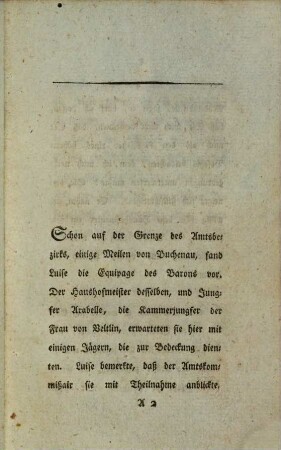 Schon auf der Grenze des Amtsbe:
zirks, einige Meilen von Buchenau, fand
Luise die Equipage des Barons vor.
Der Haushofmeister desselben, und Jung:
fer Arabelle, die Kammerjungfer der
Frau von Veltlin, erwarteten sie hier mit
einigen Jägern, die zur Bedeckung dien:
ten. Luise bemerkte, daß der Amtskom:
mißair sie mit Theilnahme anblickte.
A 2